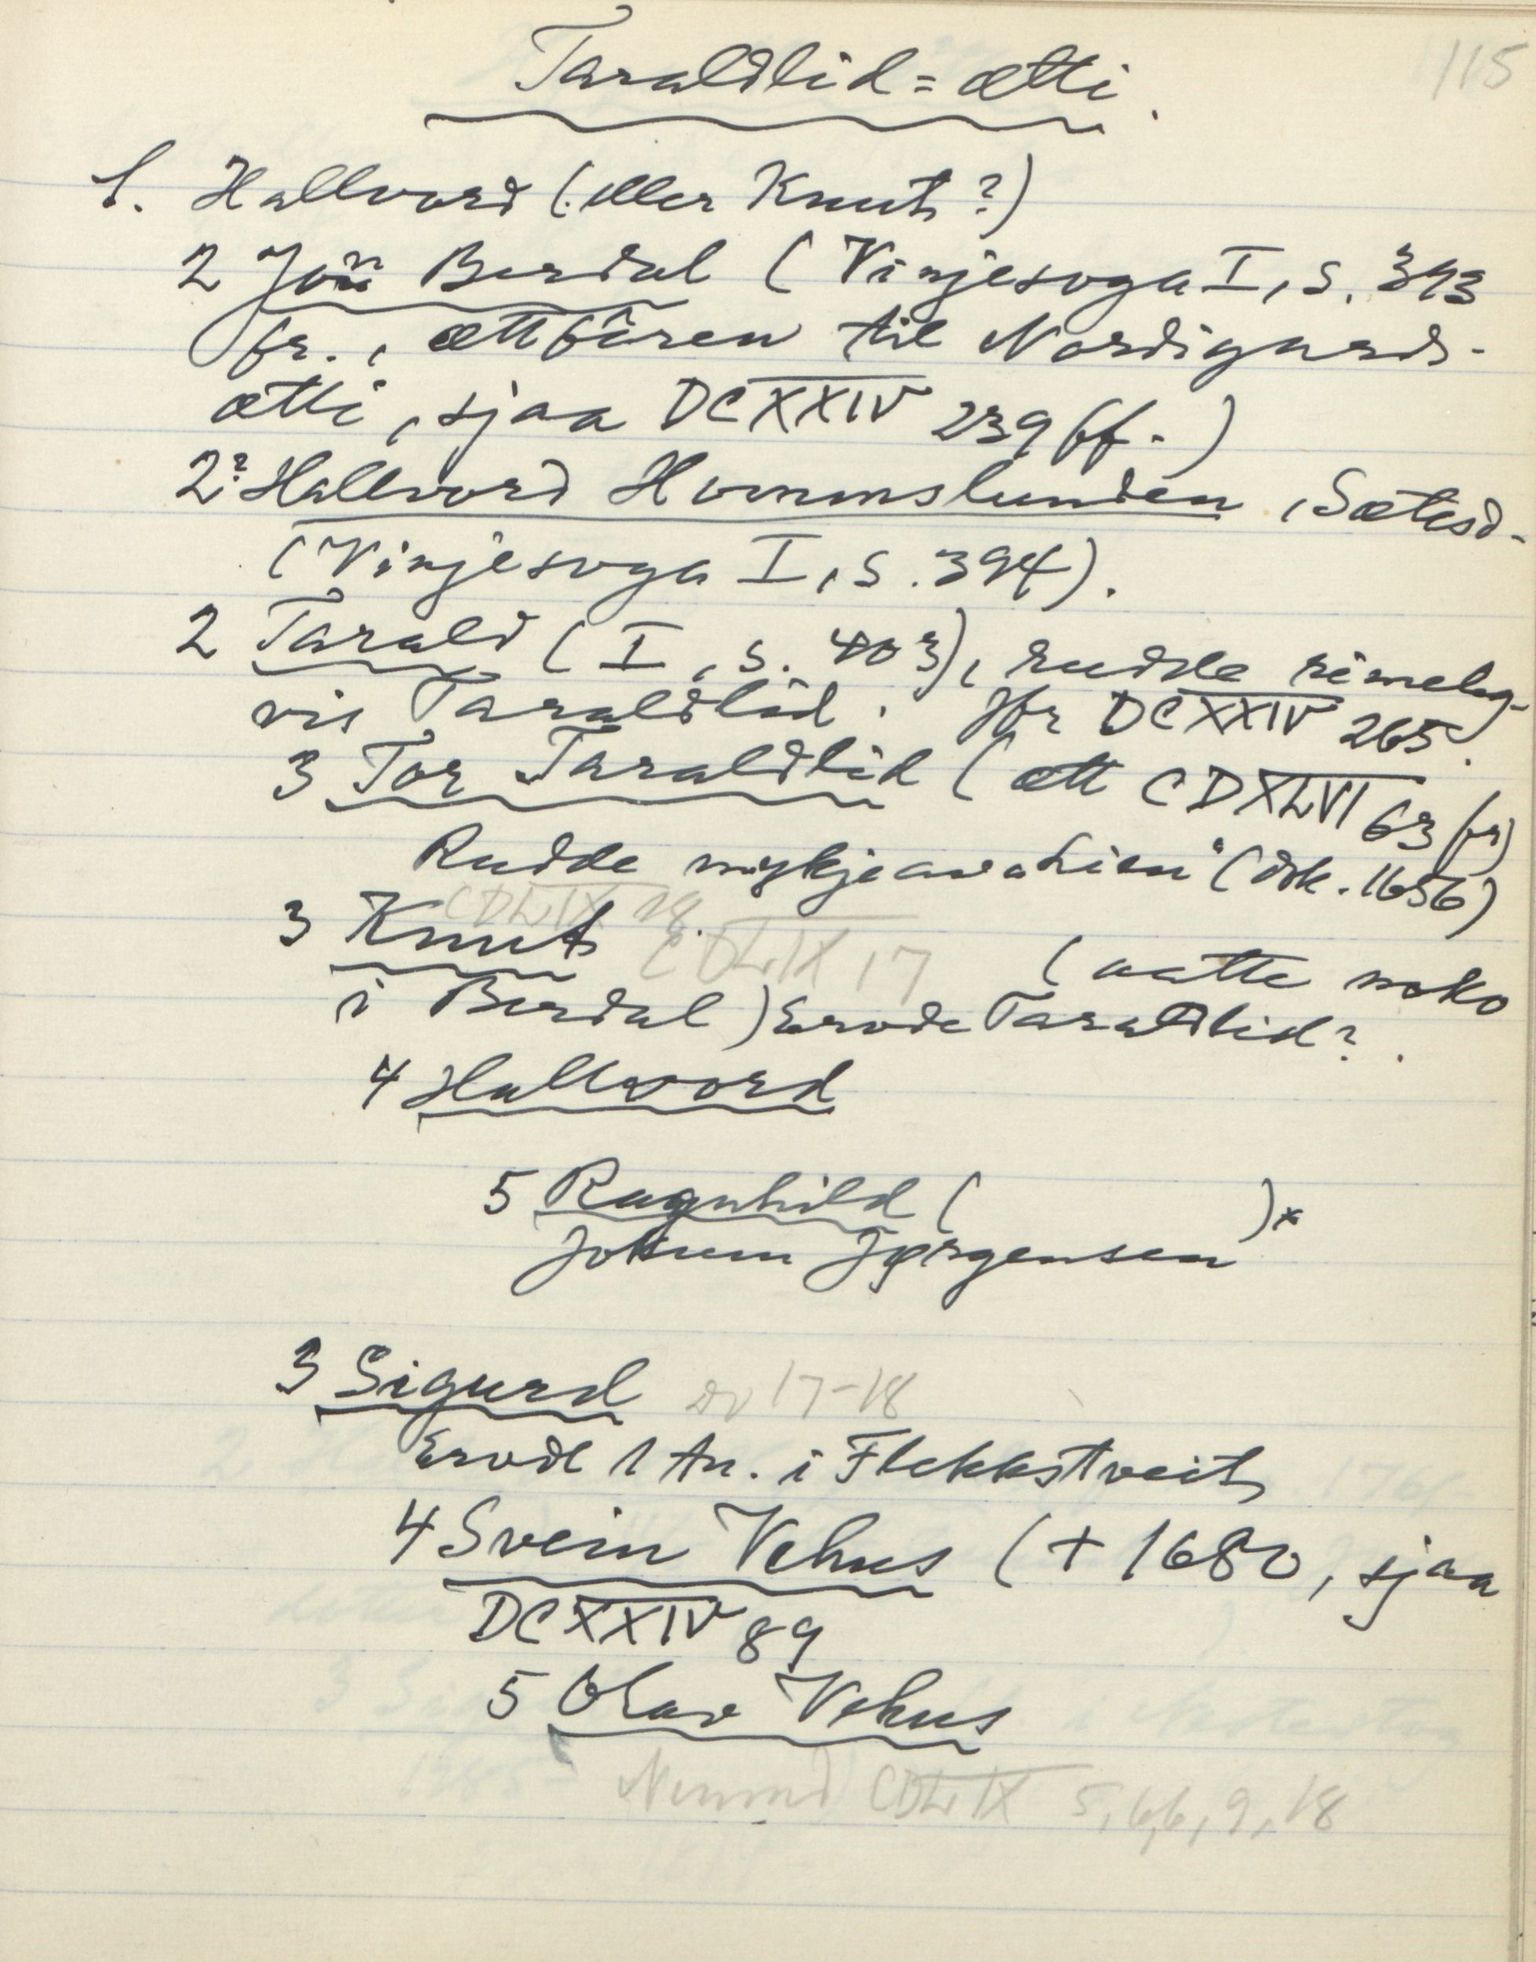 115
Taraldlid=ætti.
1. Hallvord (eller Knut?)
2 Jon Berdal (Vinjesoga I, s. 393
fr., ættfaren til Nordigards-
ætti, sjaa DCXXIV 239 ff.)
2? Hallvord Hommslunden, Sætesd-
(Vinjesoga I, s. 394).
2 Tarald (I, s. 403), rudde rimeleg-
vis Taraldlid. Jfr DCXXIV 265.
3 Tor Taraldlid (ætt CDXLVI 63 fr)
Rudde "Lien" (dok. 1656)
CDLIX 18.
3 Knut CDLIX 17 (aatte noko
i Berdal) Erode Taraldlid?.
4 Hallvord
5 Ragnhild ( )*
Jokum Jørgensen
3 Sigurd do 17-18
Erode 1 tn. i Flekkstveit
4 Svein Vehus (+ 1680, sjaa
DCXXIV 89
5 Olav Vehus
Nemnd CDLIX 5, 6, 9, 18